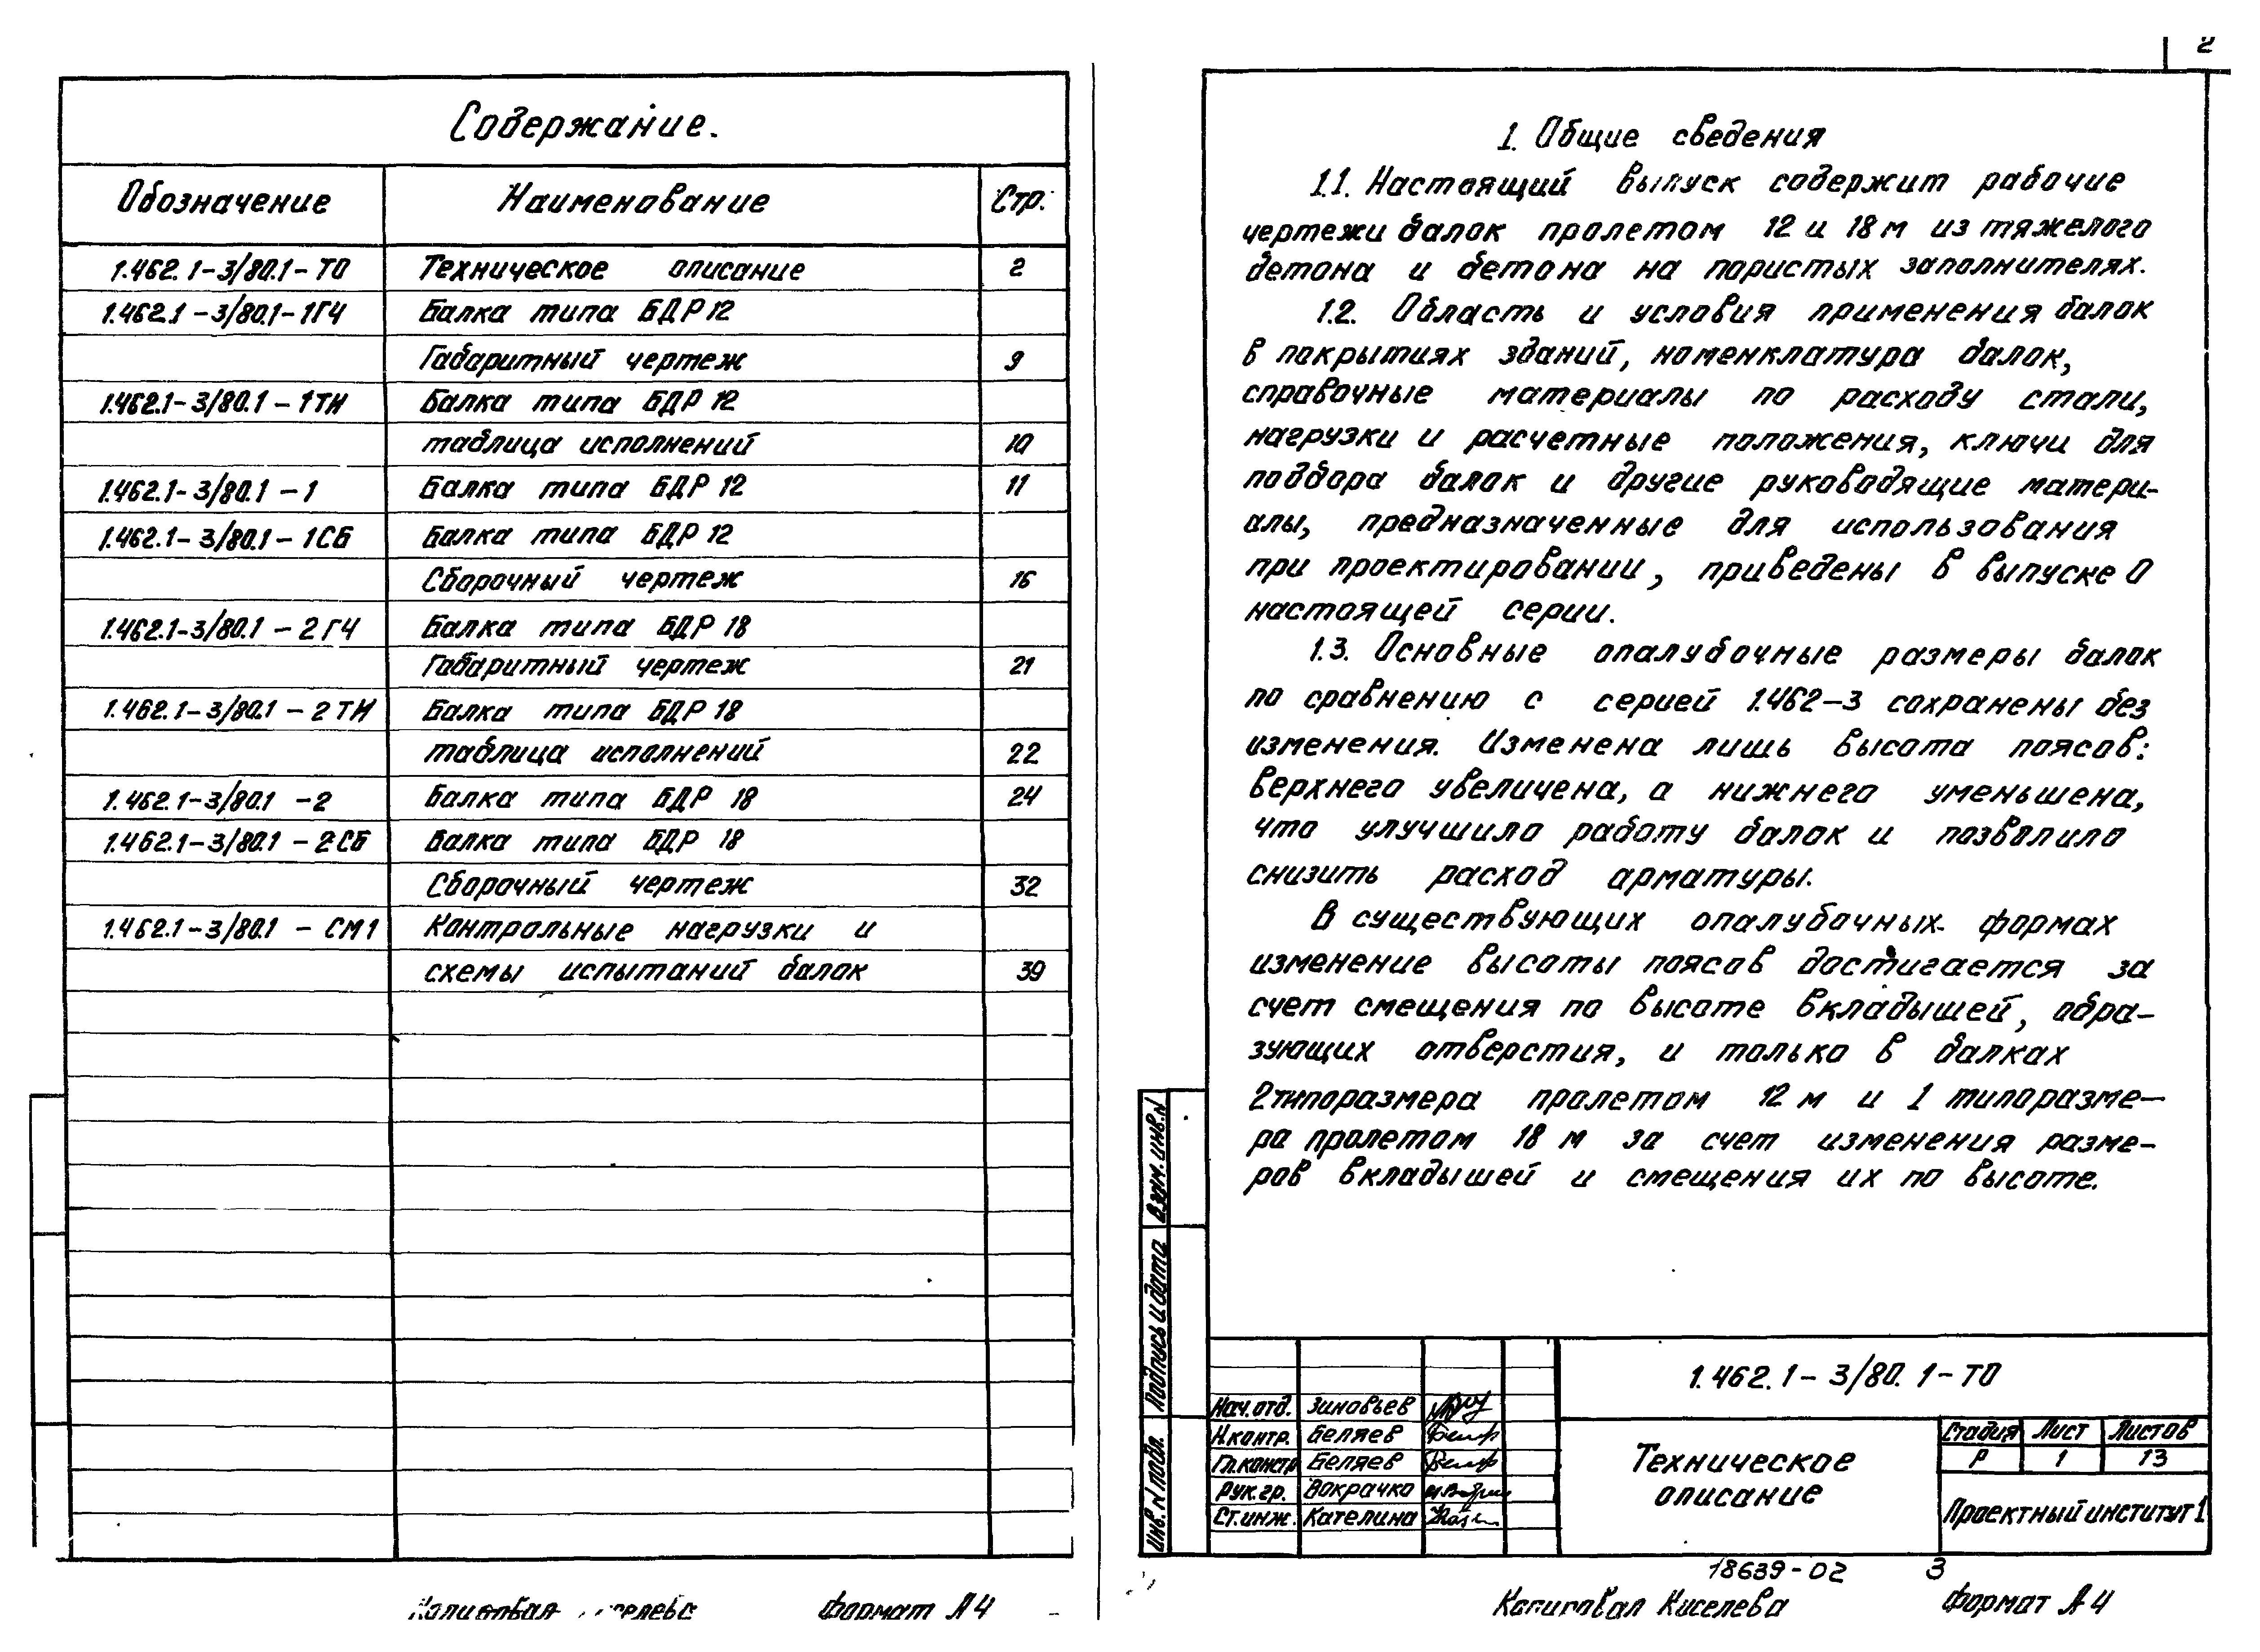 Содержание.
Обозначение Наименование Стр.
1.462.1-3/80.1-ТО Техническое описание 2
1.462.1-3/80.1-1ГЧ Балка типа БДР 12
Габаритный чертеж 9
1.462.1-3/80.1-1ТИ Балка типа БДР 12
таблица исполнений 10
1.462.1-3/80.1-1 Балка типа БДР 12 11
1.462.1-3/80.1-1СБ Балка типа БДР 12
Сборочный чертеж 16
1.462.1-3/80.1-2ГЧ Балка типа БДР 18
Габаритный чертеж 21
1.462.1-3/80.1-2ТИ Балка типа БДР 18
таблица исполнений 22
1.462.1-3/80.1-2 Балка типа БДР 18 24
1.462.1-3/80.1-2СБ Балка типа БДР 18
Сборочный чертеж 32
1.462.1-3/80.1-СМ1 Контрольные нагрузки и
схемы испытаний балок 39
Формат А4
2
1. Общие сведения
1.1. Настоящий выпуск содержит рабочие
чертежи балок пролетом 12 и 18 м из тяжелого
бетона и бетона на пористых заполнителях.
1.2. Область и условия применения балок
в покрытиях зданий, номенклатура балок,
справочные материалы по расходу стали,
нагрузки и расчетные положения, ключи для
подбора балок и другие руководящие матери-
алы, предназначенные для использования
при проектировании, приведены в выпуске 0
настоящей серии.
1.3. Основные опалубочные размеры балок
по сравнению с серией 1.462-3 сохранены без
изменения. Изменена лишь высота поясов:
верхнего увеличена, а нижнего уменьшена,
что улучшило работу балок и позволило
снизить расход арматуры.
В существующих опалубочных формах
изменение высоты поясов достигается за
счет смещения по высоте вкладышей, обра-
зующих отверстия, и только в балках
2 типоразмера пролетом 12 м и 1 типоразме-
ра пролетом 18 м за счет изменения разме-
ров вкладышей и смещения их по высоте.
Взам. инв. N
Подпись и дата
Инв. N подл.
1.462.1-3/80.1-ТО
Нач. отд. Зиновьев
Н.контр. Беляев
Гл.констр Беляев
Рук.гр. Вокрачко
Ст.инж. Кателина
Техническое
описание
Стадия Лист Листов
Р 1 13
Проектный институт 1
18639-02 3
Копировал Киселева Формат А4